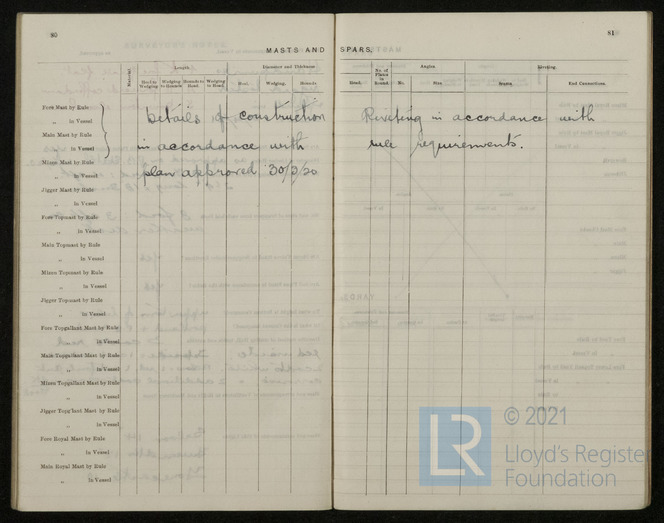 80
81
MASTS AND SPARS.
Material
Length.
Diameter and Thickness.
Angles
Riveting.
Heel to Wedging
Wedging to Hounds
Hounds to Head.
Wedging to Head.
Heel.
Wedging.
Hounds.
Head.
No. of Plates in Round.
No.
Size
Seams
End Connections.
Fore Mast by Rule
„ in Vessel
Main Mast by Rule
„ in Vessel
Mizen Mast by Rule
„ in Vessel
Jigger Mast by Rule
„ in Vessel
Fore Topmast by Rule
„ in Vessel
Main Topmast by Rule
„ in Vessel
Mizen Topmast by Rule
„ in Vessel
Jigger Topmast by Rule
„ in Vessel
Fore Topgallant Mast by Rule
„ in Vessel
Main Topgallant Mast by Rule
„ in Vessel
Mizen Topgallant Mast by Rule
„ in Vessel
Jigger Topg'lant Mast by Rule
„ in Vessel
Fore Royal Mast by Rule
„ in Vessel
Main Royal Mast by Rule
„ in Vessel
Details of construction
in accordance with
plan approved 30/3/20
Riveting in accordance with
rule requirements.
LR
© 2021
Lloyd's Register
Foundation